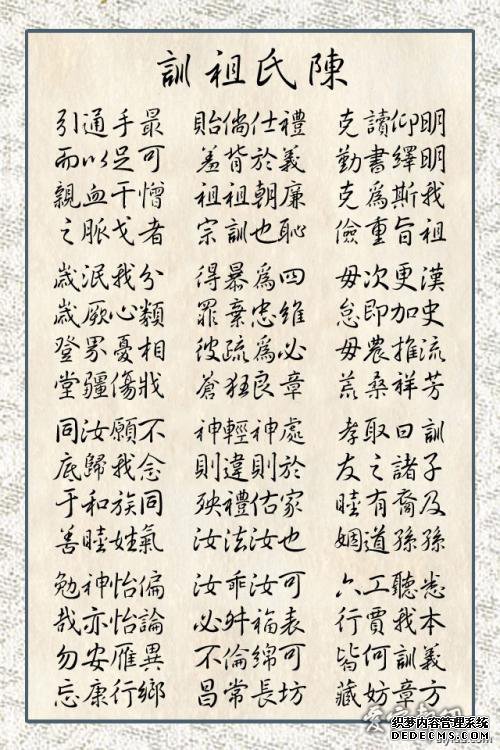 陳氏祖訓
明明我祖 漢史流芳 訓子及孫 悉本義方
仰繹斯旨 更加推祥 曰諸裔孫 聽我訓章
讀書為重 次即農桑 取之有道 工賈何妨
克勤克儉 毋怠毋荒 孝友睦婣 六行皆藏
禮義廉恥 四維必章 處於家也 可表可坊
仕於朝也 為忠為良 神則佑汝 汝福綿長
倘背祖訓 暴棄疏狂 輕違禮法 乖舛倫常
貽羞祖宗 得罪彼蒼 神則殃汝 汝必不昌
最可憎者 分類相戕 不念同氣 偏論異鄉
手足干戈 我心憂傷 願我族姓 怡怡雁行
通以血脈 泯厥界疆 汝歸和睦 神亦安康
引而親之 歲歲登堂 同底于善 勉哉勿忘
织梦内容管理系统
DEDECMS.COM